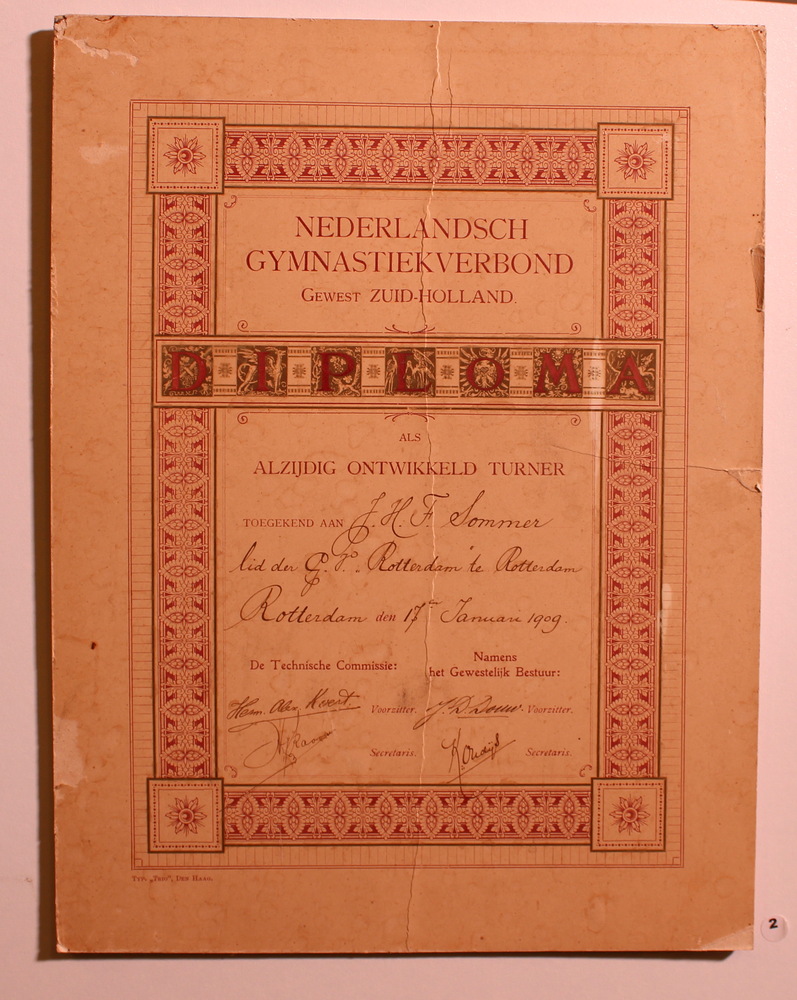 NEDERLANDSCH
GYMNASTIEKVERBOND
GEWEST ZUID-HOLLAND.
DIPLOMA
ALS
ALZIJDIG ONTWIKKELD TURNER
TOEGEKEND AAN J. H. F. Sommer
lid der G. V. „Rotterdam" te Rotterdam
Rotterdam den 17den Januari 1909.
De Technische Commissie:
Namens
het Gewestelijk Bestuur:
Voorzitter. J. D. Douw. Voorzitter.
Secretaris. Secretaris.
TYP. „TRIO", DEN HAAG.
2